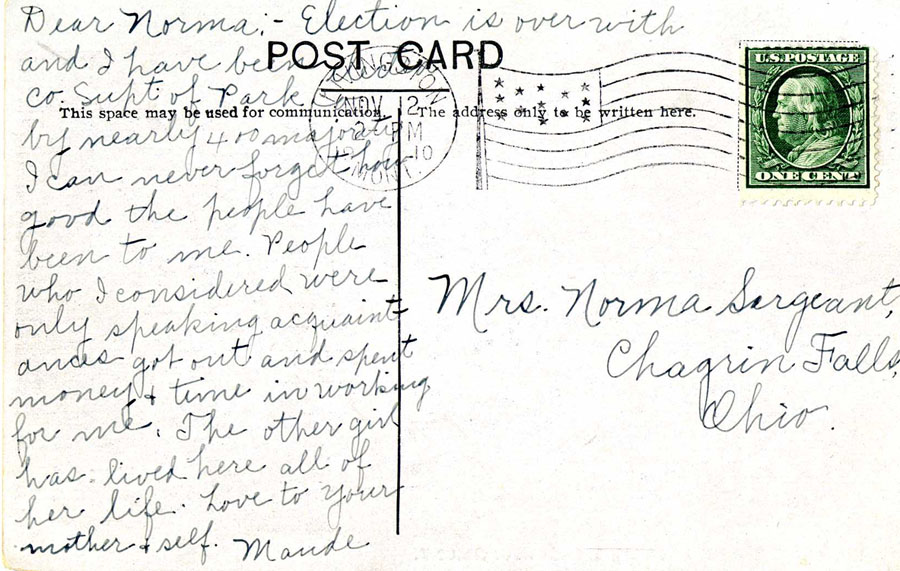 Dear Norma:- Election is over with
and I have been elected
Co. Supt of Park Co.
by nearly 400 majority
I can never forget how
good the people have
been to me. People
who I considered were
only speaking acquaint-
ances got out and spent
money & time in working
for me. The other girl
has lived here all of
her life. Love to your
mother & self. Maude
POST CARD
This space may be used for communication.
The address only to be written here.
NOV 2
2 PM
10
MONT.
U.S. POSTAGE
ONE CENT
Mrs. Norma Sargeant,
Chagrin Falls,
Ohio.